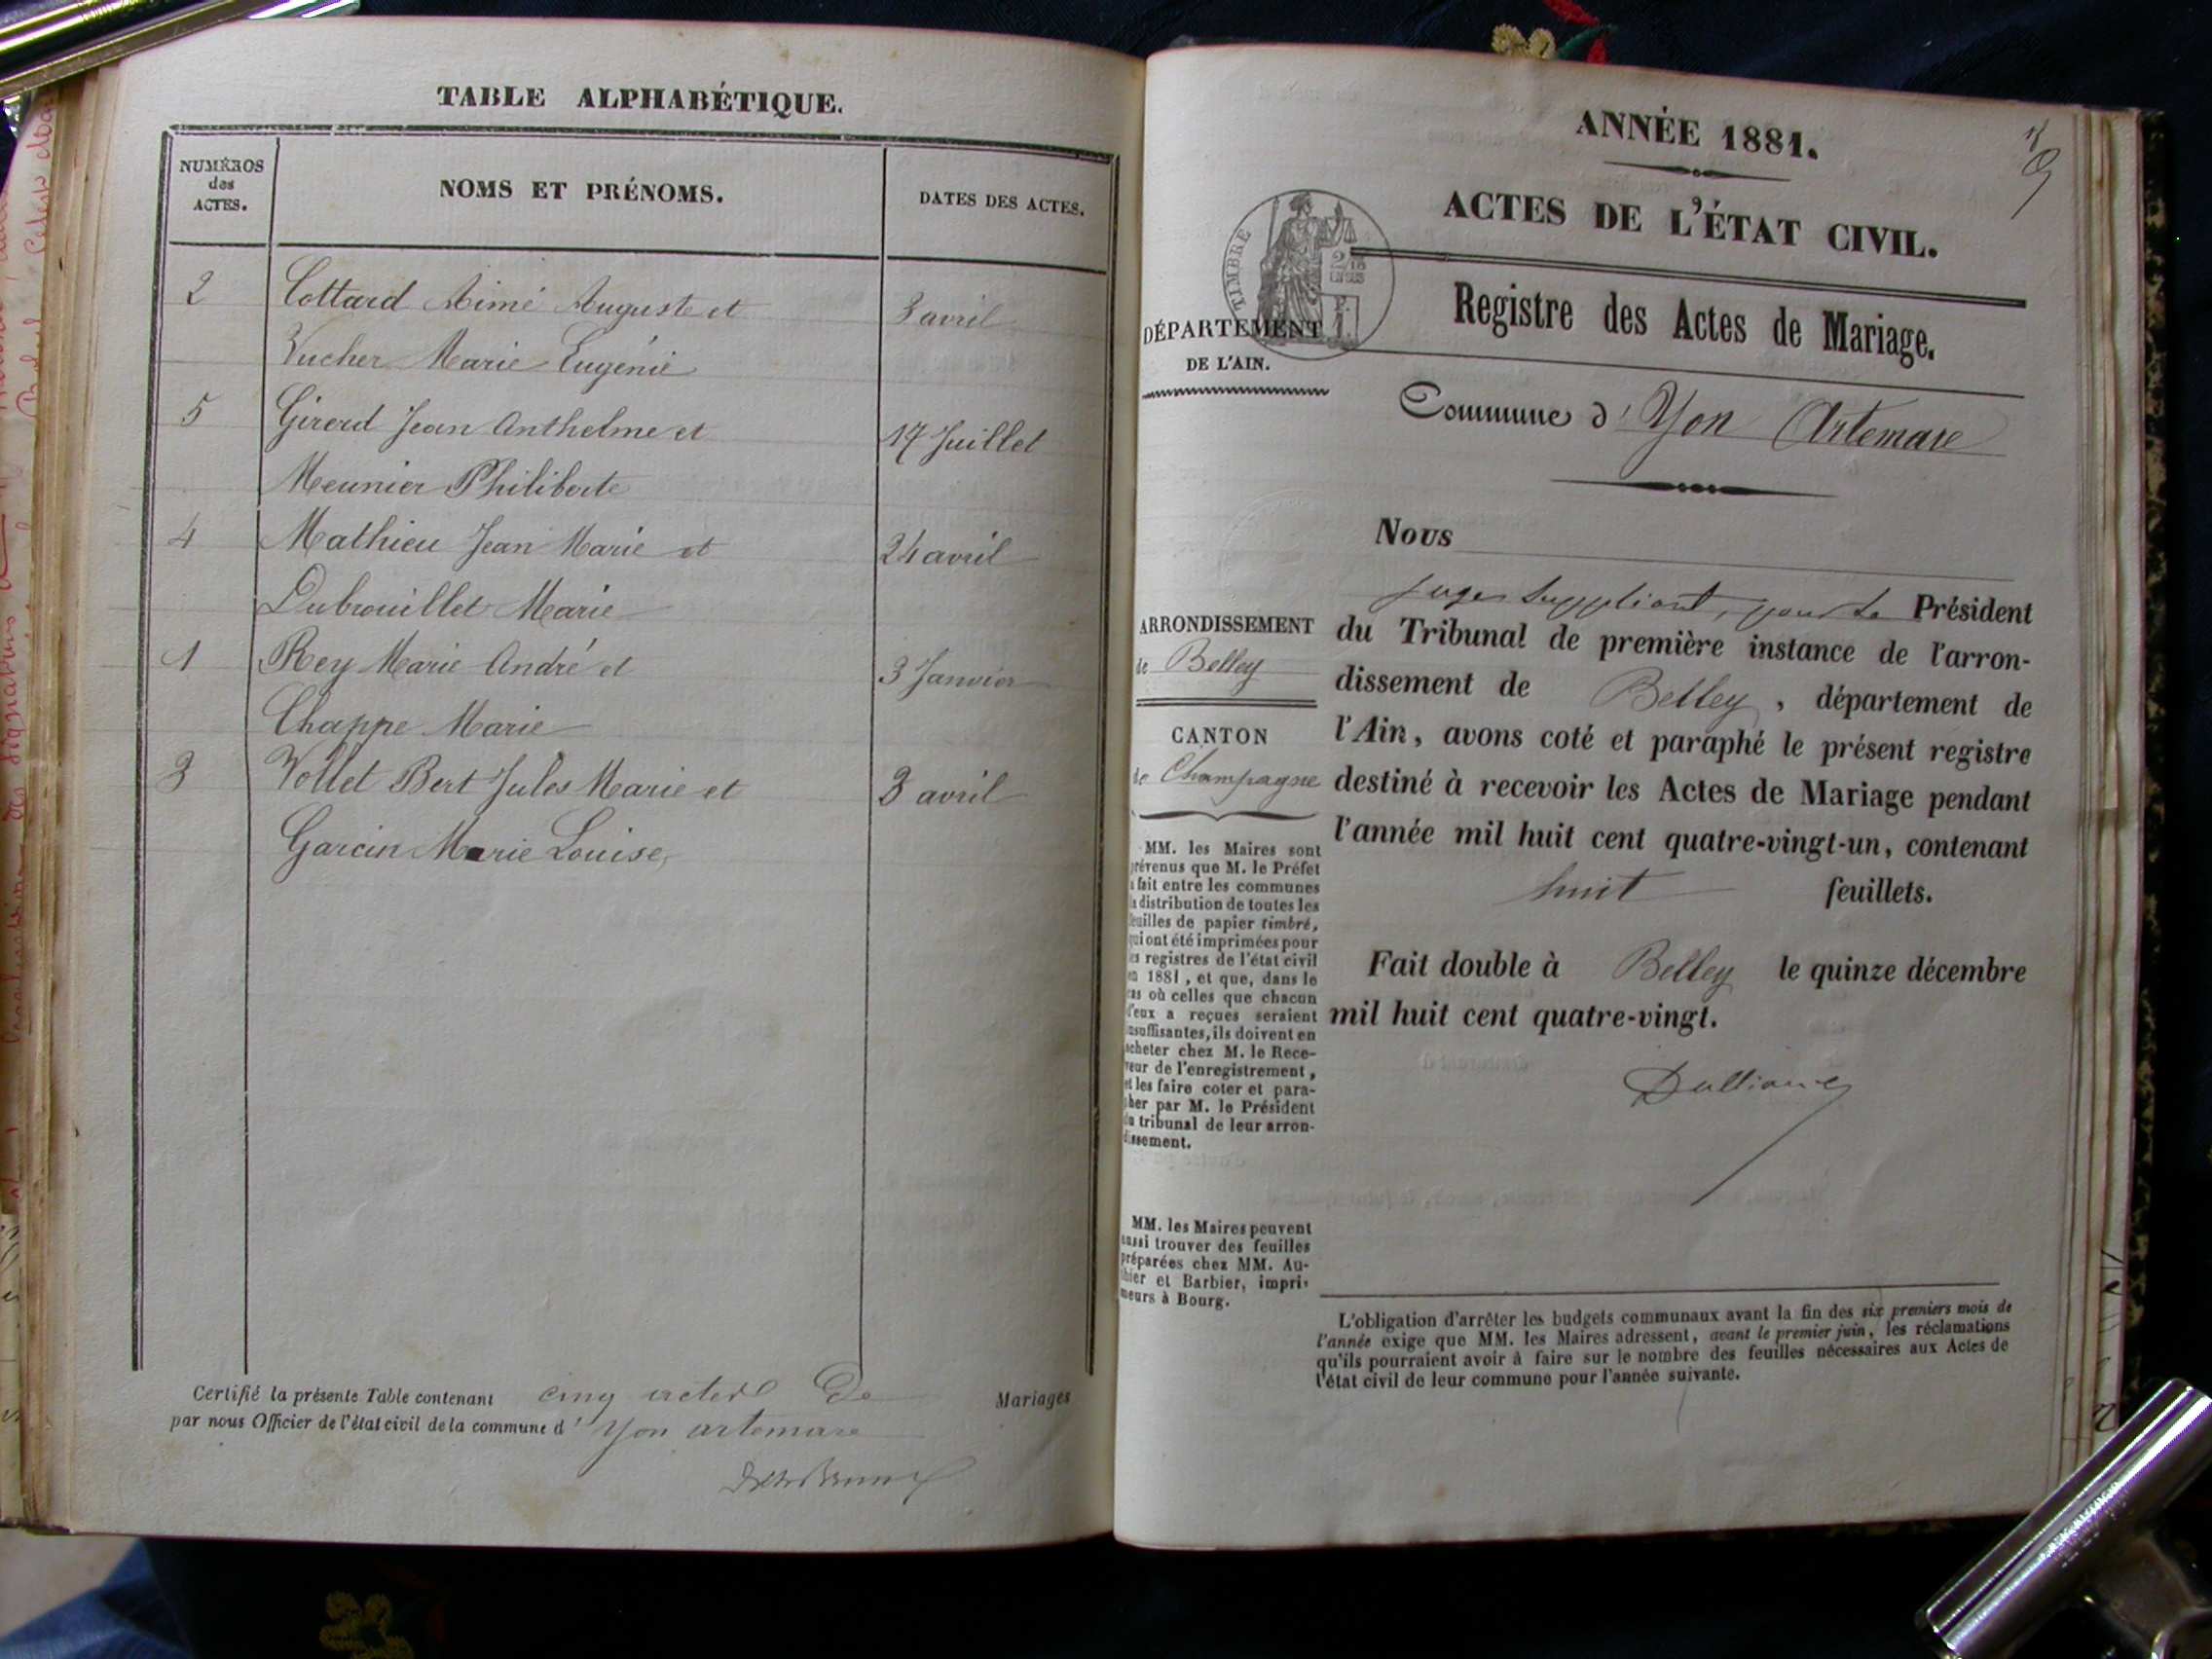 TABLE ALPHABÉTIQUE.
NUMÉROS
des
ACTES.
NOMS ET PRÉNOMS.
DATES DES ACTES.
2 Cottard Aimé Auguste et 3 avril
Vucher Marie Eugénie
5 Girerd Jean Anthelme et 17 Juillet
Meunier Philiberte
4 Mathieu Jean Marie et 24 avril
Dubrouillet Marie
1 Rey Marie André et 3 Janvier
Chappe Marie
3 Vollet Bert Jules Marie et 3 avril
Garcin Marie Louise
Certifié la présente Table contenant cinq actes de Mariages
par nous Officier de l'état civil de la commune d' Yon artemare
ANNÉE 1881.
ACTES DE L'ÉTAT CIVIL.
TIMBRE
DÉPARTEMENT
DE L'AIN.
Registre des Actes de Mariage.
Commune d' Yon Artemare
Nous
juge suppléant, pour le Président
du Tribunal de première instance de l'arron-
dissement de Belley, département de
l'Ain, avons coté et paraphé le présent registre
destiné à recevoir les Actes de Mariage pendant
l'année mil huit cent quatre-vingt-un, contenant
huit feuillets.
Fait double à Belley le quinze décembre
mil huit cent quatre-vingt.
ARRONDISSEMENT
de Belley
CANTON
de Champagne
MM. les Maires sont
prévenus que M. le Préfet
a fait entre les communes
la distribution de toutes les
feuilles de papier timbré,
qui ont été imprimées pour
les registres de l'état civil
en 1881, et que, dans le
cas où celles que chacun
d'eux a reçues seraient
insuffisantes, ils doivent en
acheter chez M. le Rece-
veur de l'enregistrement,
et les faire coter et para-
pher par M. le Président
du tribunal de leur arron-
dissement.
MM. les Maires peuvent
aussi trouver des feuilles
préparées chez MM. Au-
thier et Barbier, impri-
meurs à Bourg.
L'obligation d'arrêter les budgets communaux avant la fin des six premiers mois de
l'année exige que MM. les Maires adressent, avant le premier juin, les réclamations
qu'ils pourraient avoir à faire sur le nombre des feuilles nécessaires aux Actes de
l'état civil de leur commune pour l'année suivante.